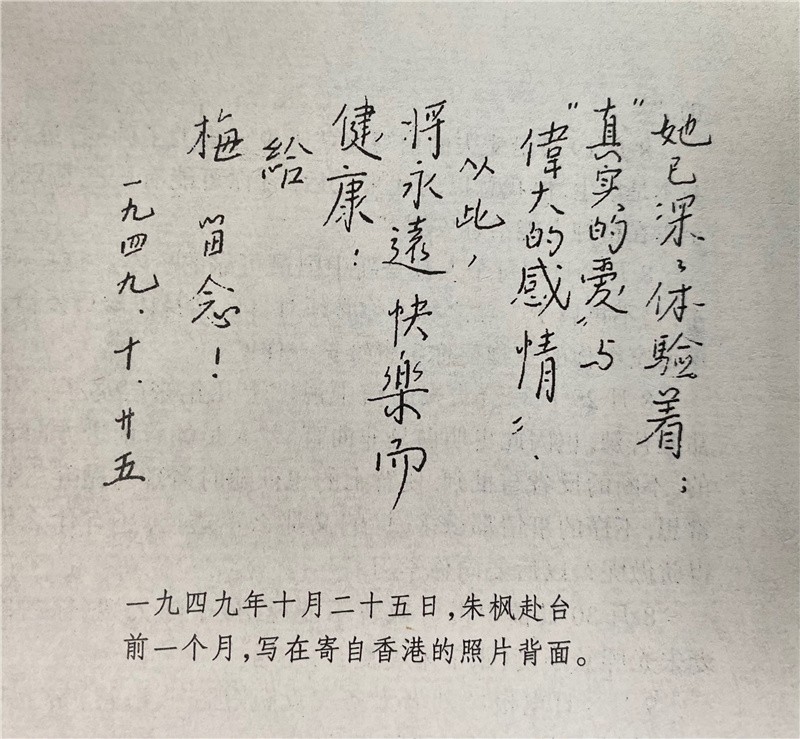 她已深々体验着：
“真实的爱”与
“偉大的感情”．
以此，
将永遠快樂而
健康！
給
梅 留念！
一九四九．十．廿五
一九四九年十月二十五日，朱枫赴台
前一个月，写在寄自香港的照片背面。